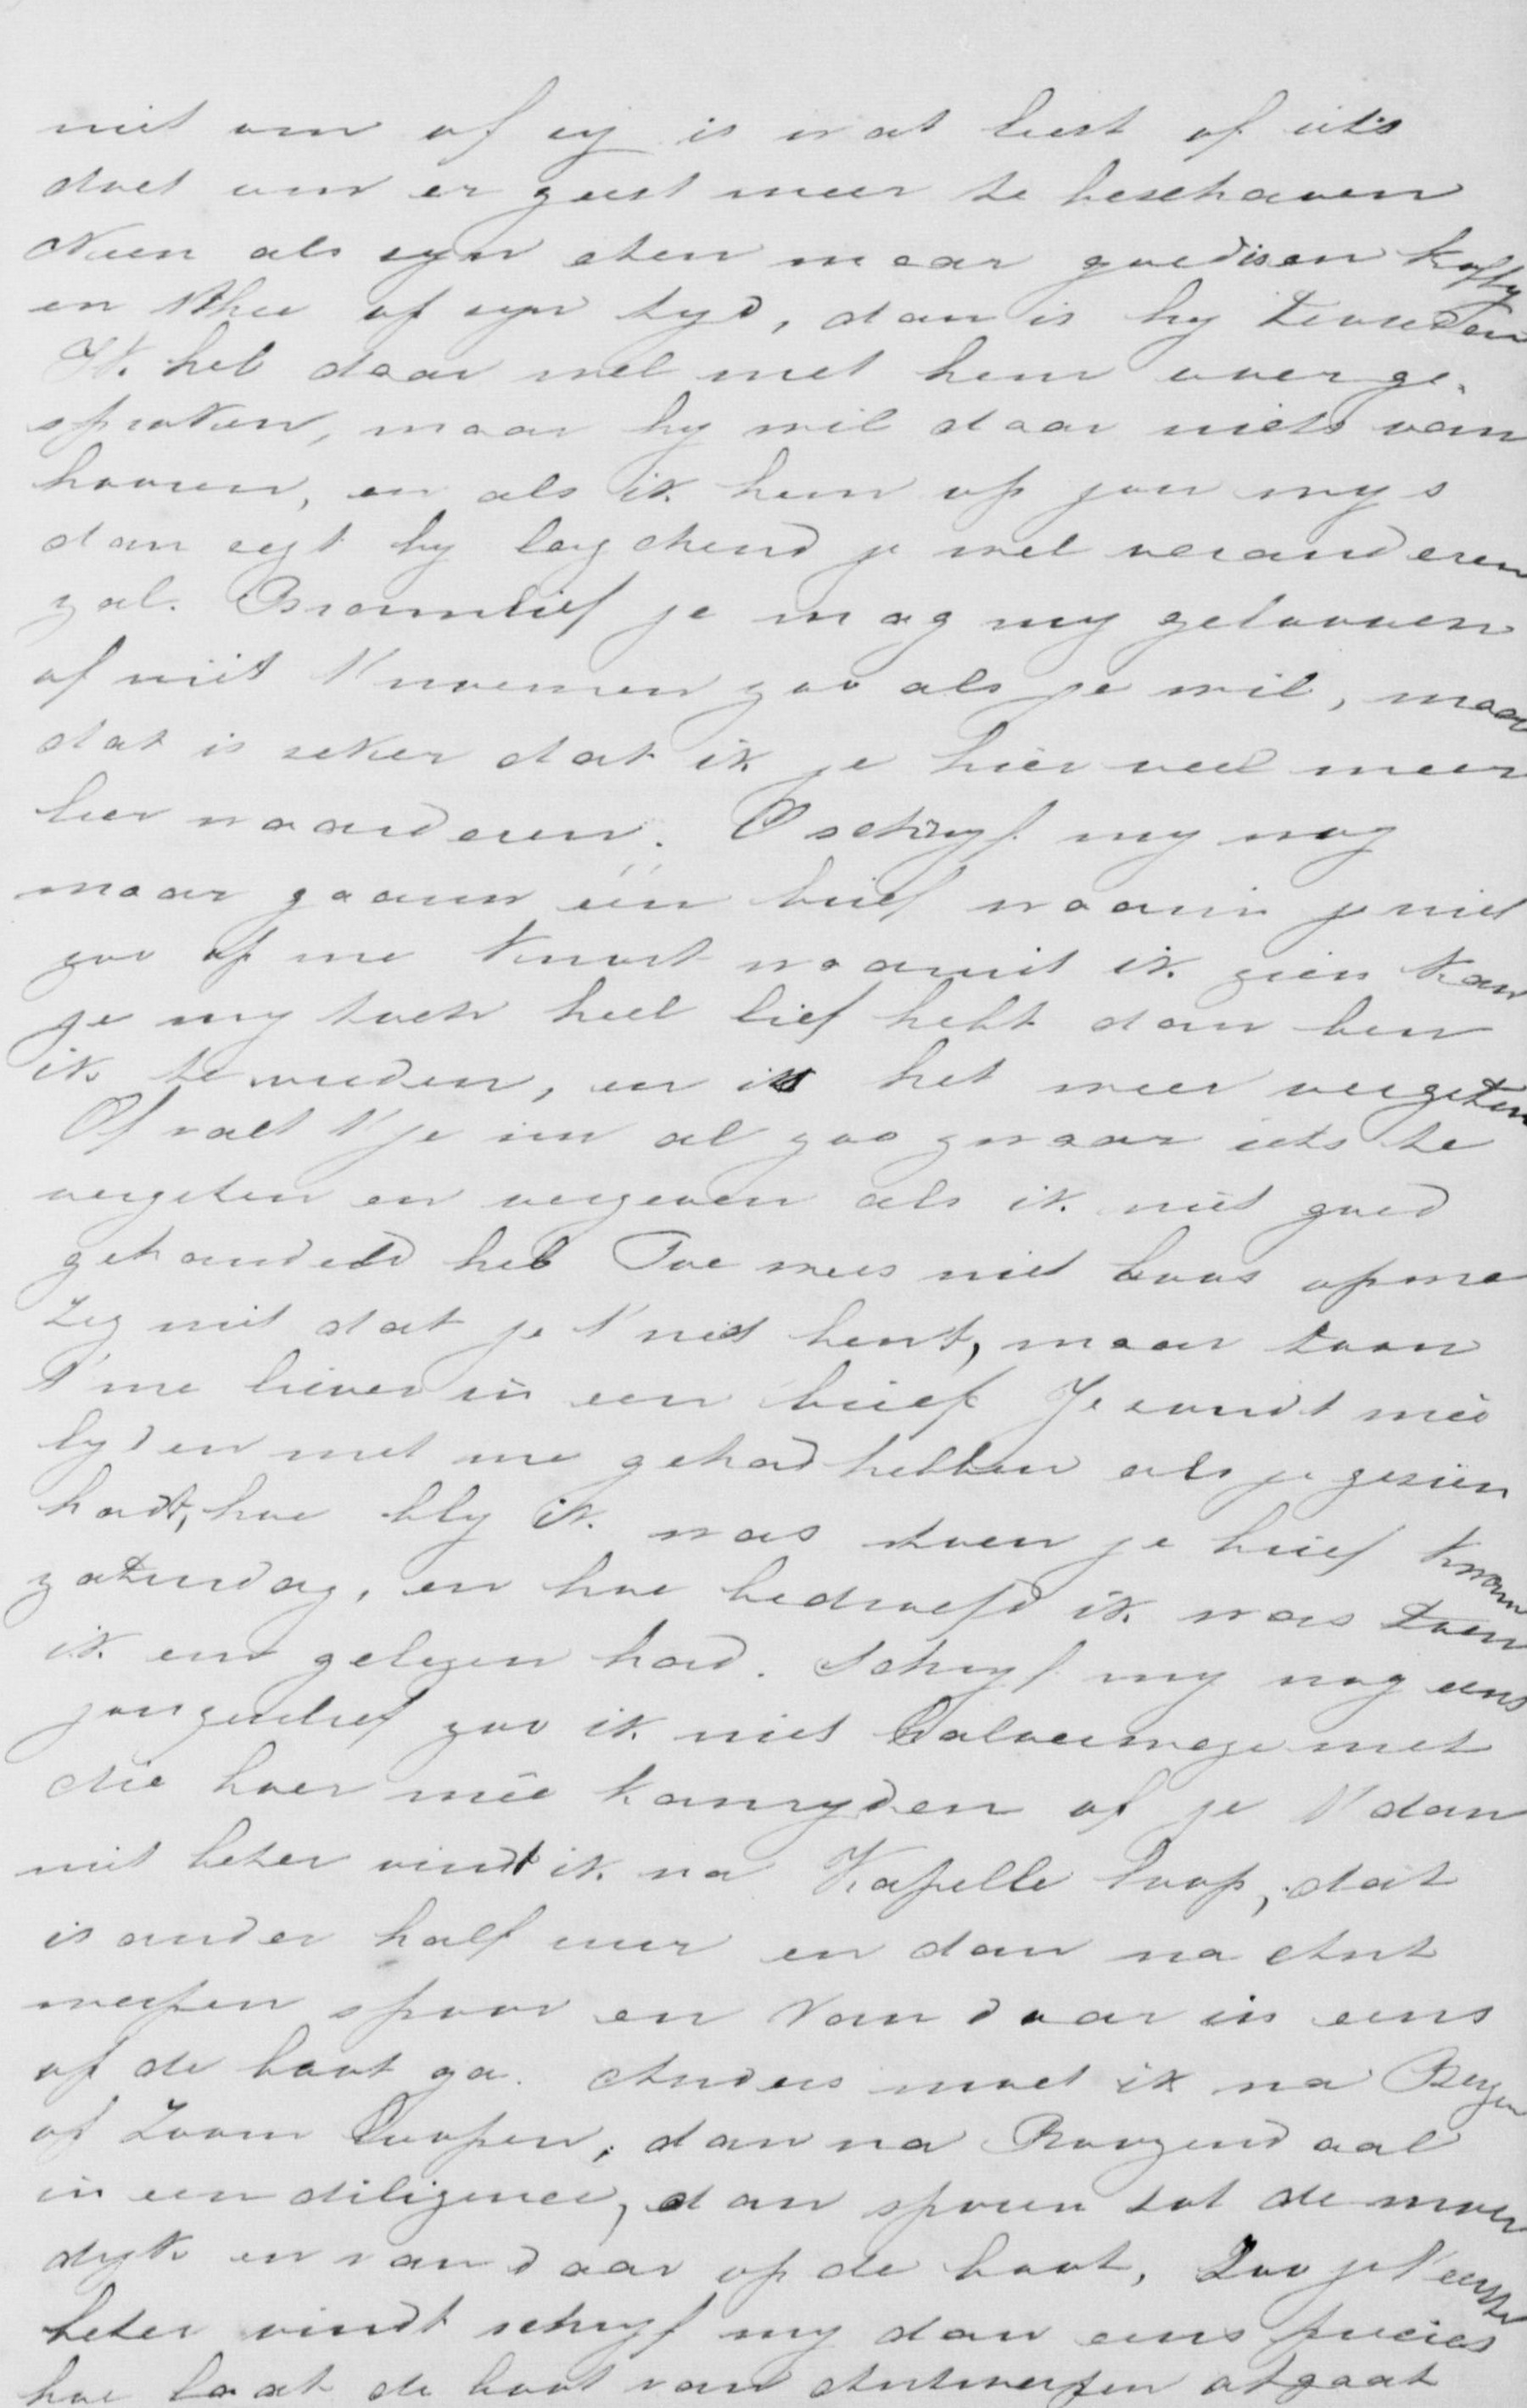 niet om of zy is wat leest of iets
doet om er geest meer te beschaven
Neen als zyn eten maar goed is en koffy
en thee op zyn tyd, dan is hy tevreden
Ik heb daar wel met hem over ge-
sproken, maar hy wil daar niets van
hooren, en als ik hem op jou wys
dan zegt hy lagchend je wel veranderen
zal. Bramlief je mag my gelooven
of niet t noemen zoo als je wil, maar
dat is zeker dat ik je hier veel meer
leer waarderen. O schryf my nog
maar gaauw één brief waarin je niet
zoo op me knort waaruit ik zien kan
je my toch heel lief hebt dan ben
ik te vreden, en is het weer vergeten
Of valt t je nu al zoo zwaar iets te
vergeten en vergeven als ik niet goed
gehandeld heb Toe wees niet boos op me
Zeg niet dat je t niet bent, maar toon
t me liever in een brief Je zoudt mêe
lyden met me gehad hebben als je gezien
hadt, hoe bly ik was toen je brief kwam
zaturdag, en hoe bedroefd ik was toen
ik em gelezen had. Schryf my nog eens
jongenlief zoo ik niet halverwege met
die boer mêe kan ryden of je t dan
niet beter vindt ik na Kapelle loop, dat
is ander half uur en dan na Ant
werpen spoor en van daar in eens
op de boot ga. Anders moet ik na Bergen
op Zoom loopen, dan na Roozendaal
in een diligence, dan sporen tot de moer
dyk en van daar op de boot, Zoo je t eerste
beter vindt schryf my dan eens precies
hoe laat de boot van Antwerpen afgaat